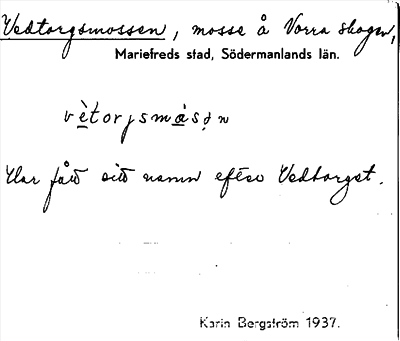 Vedtorgsmossen, mosse å Norra skogen,
Mariefreds stad, Södermanlands län.
vè̱torjsmå̱sə̣n
Har fått sitt namn efter Vedtorget.
Karin Bergström 1937.